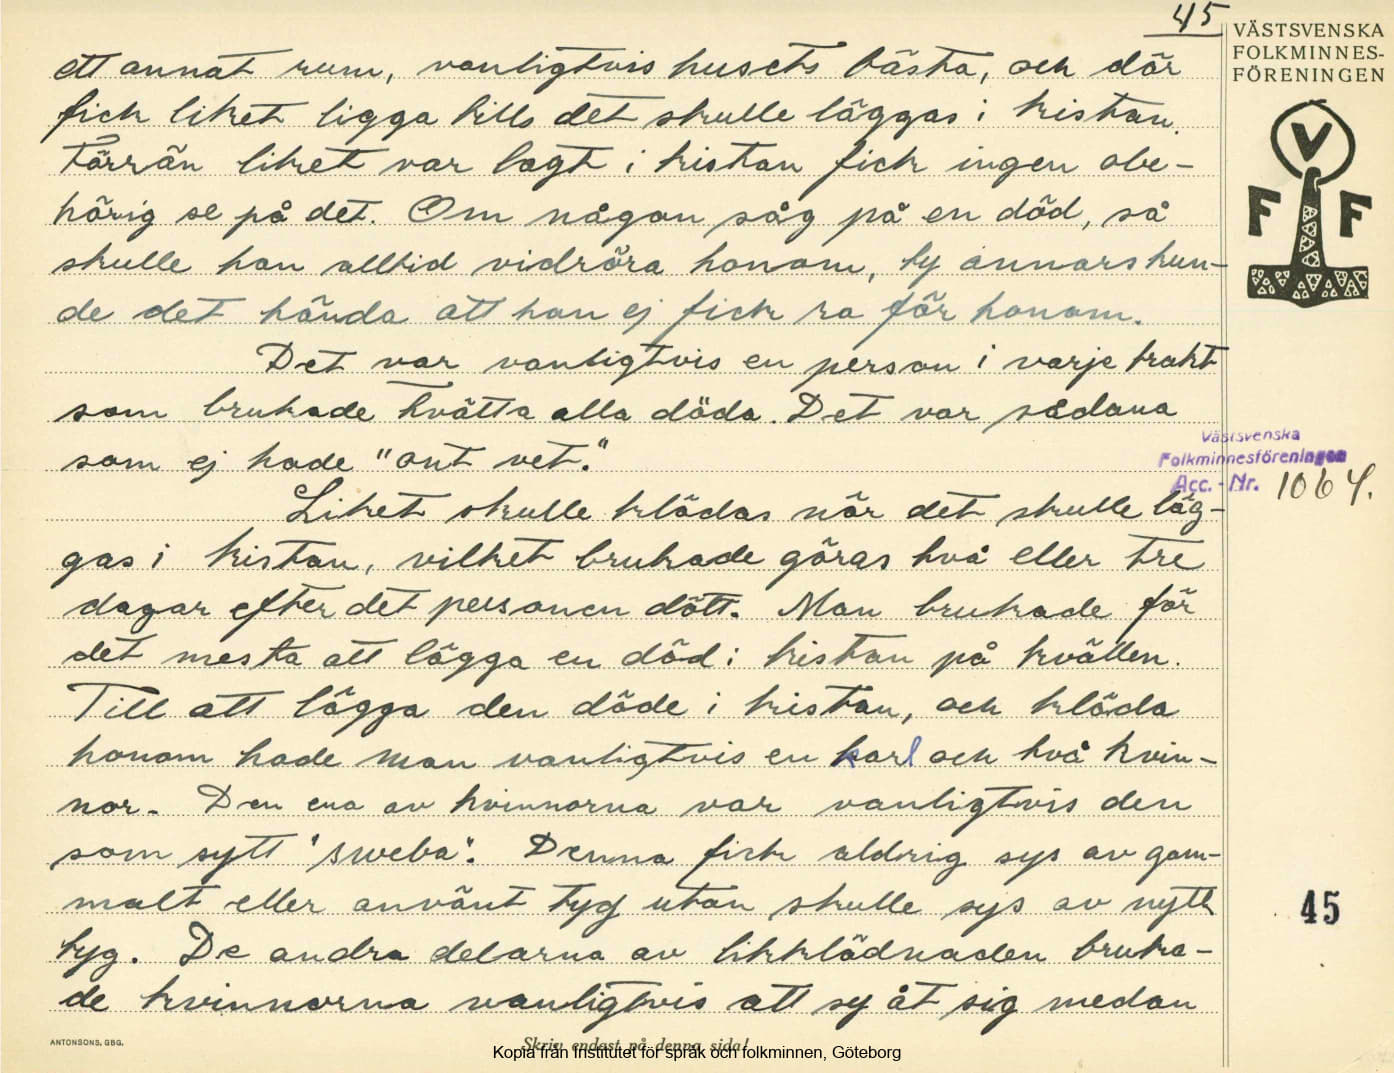 45
VÄSTSVENSKA
FOLKMINNES-
FÖRENINGEN
V
F F
ett annat rum, vanligtvis husets bästa, och där
fick liket ligga tills det skulle läggas i kistan.
Förrän liket var lagt i kistan fick ingen obe-
hörig se på det. Om någon såg på en död, så
skulle han alltid vidröra honom, ty annars kun-
de det hända att han ej fick ra för honom.
Det var vanligtvis en person i varje trakt
som brukade tvätta alla döda. Det var sådana
som ej hade "ont vet."
Västsvenska
Folkminnesföreningen
Acc. - Nr. 1064.
Liket skulle klädas när det skulle läg-
gas i kistan, vilket brukade göras två eller tre
dagar efter det personen dött. Man brukade för
det mesta att lägga en död i kistan på kvällen.
Till att lägga den döde i kistan, och kläda
honom hade man vanligtvis en karl och två kvin-
nor. Den ena av kvinnorna var vanligtvis den
som sytt "sweba". Denna fick aldrig sys av gam-
malt eller använt tyg utan skulle sys av nytt
45
tyg. De andra delarna av likklädnaden bruka-
de kvinnorna vanligtvis att sy åt sig medan
ANTONSONS, GBG.
Skriv endast på denna sida!
Kopia från Institutet för språk och folkminnen, Göteborg